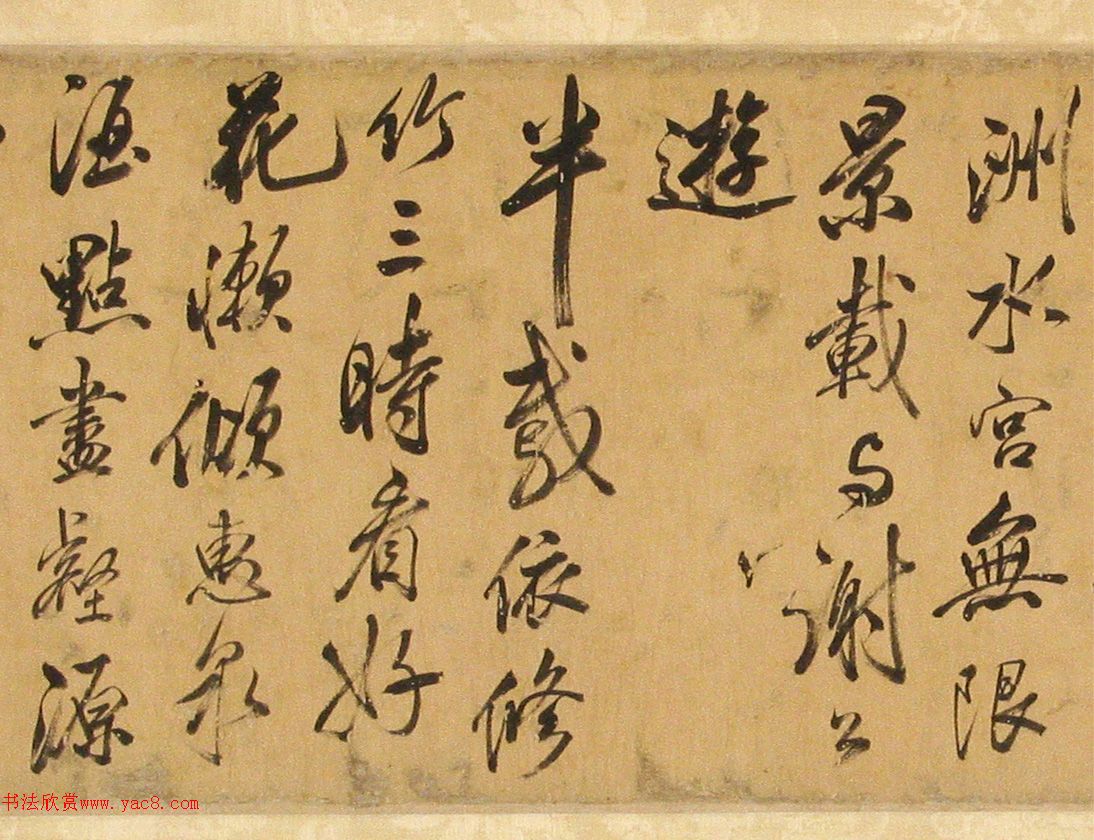 洲水宮無限
景載与謝公
遊
半歲依修
竹三時看好
花懶傾惠泉
酒點盡壑源
书法欣赏www.yac8.com